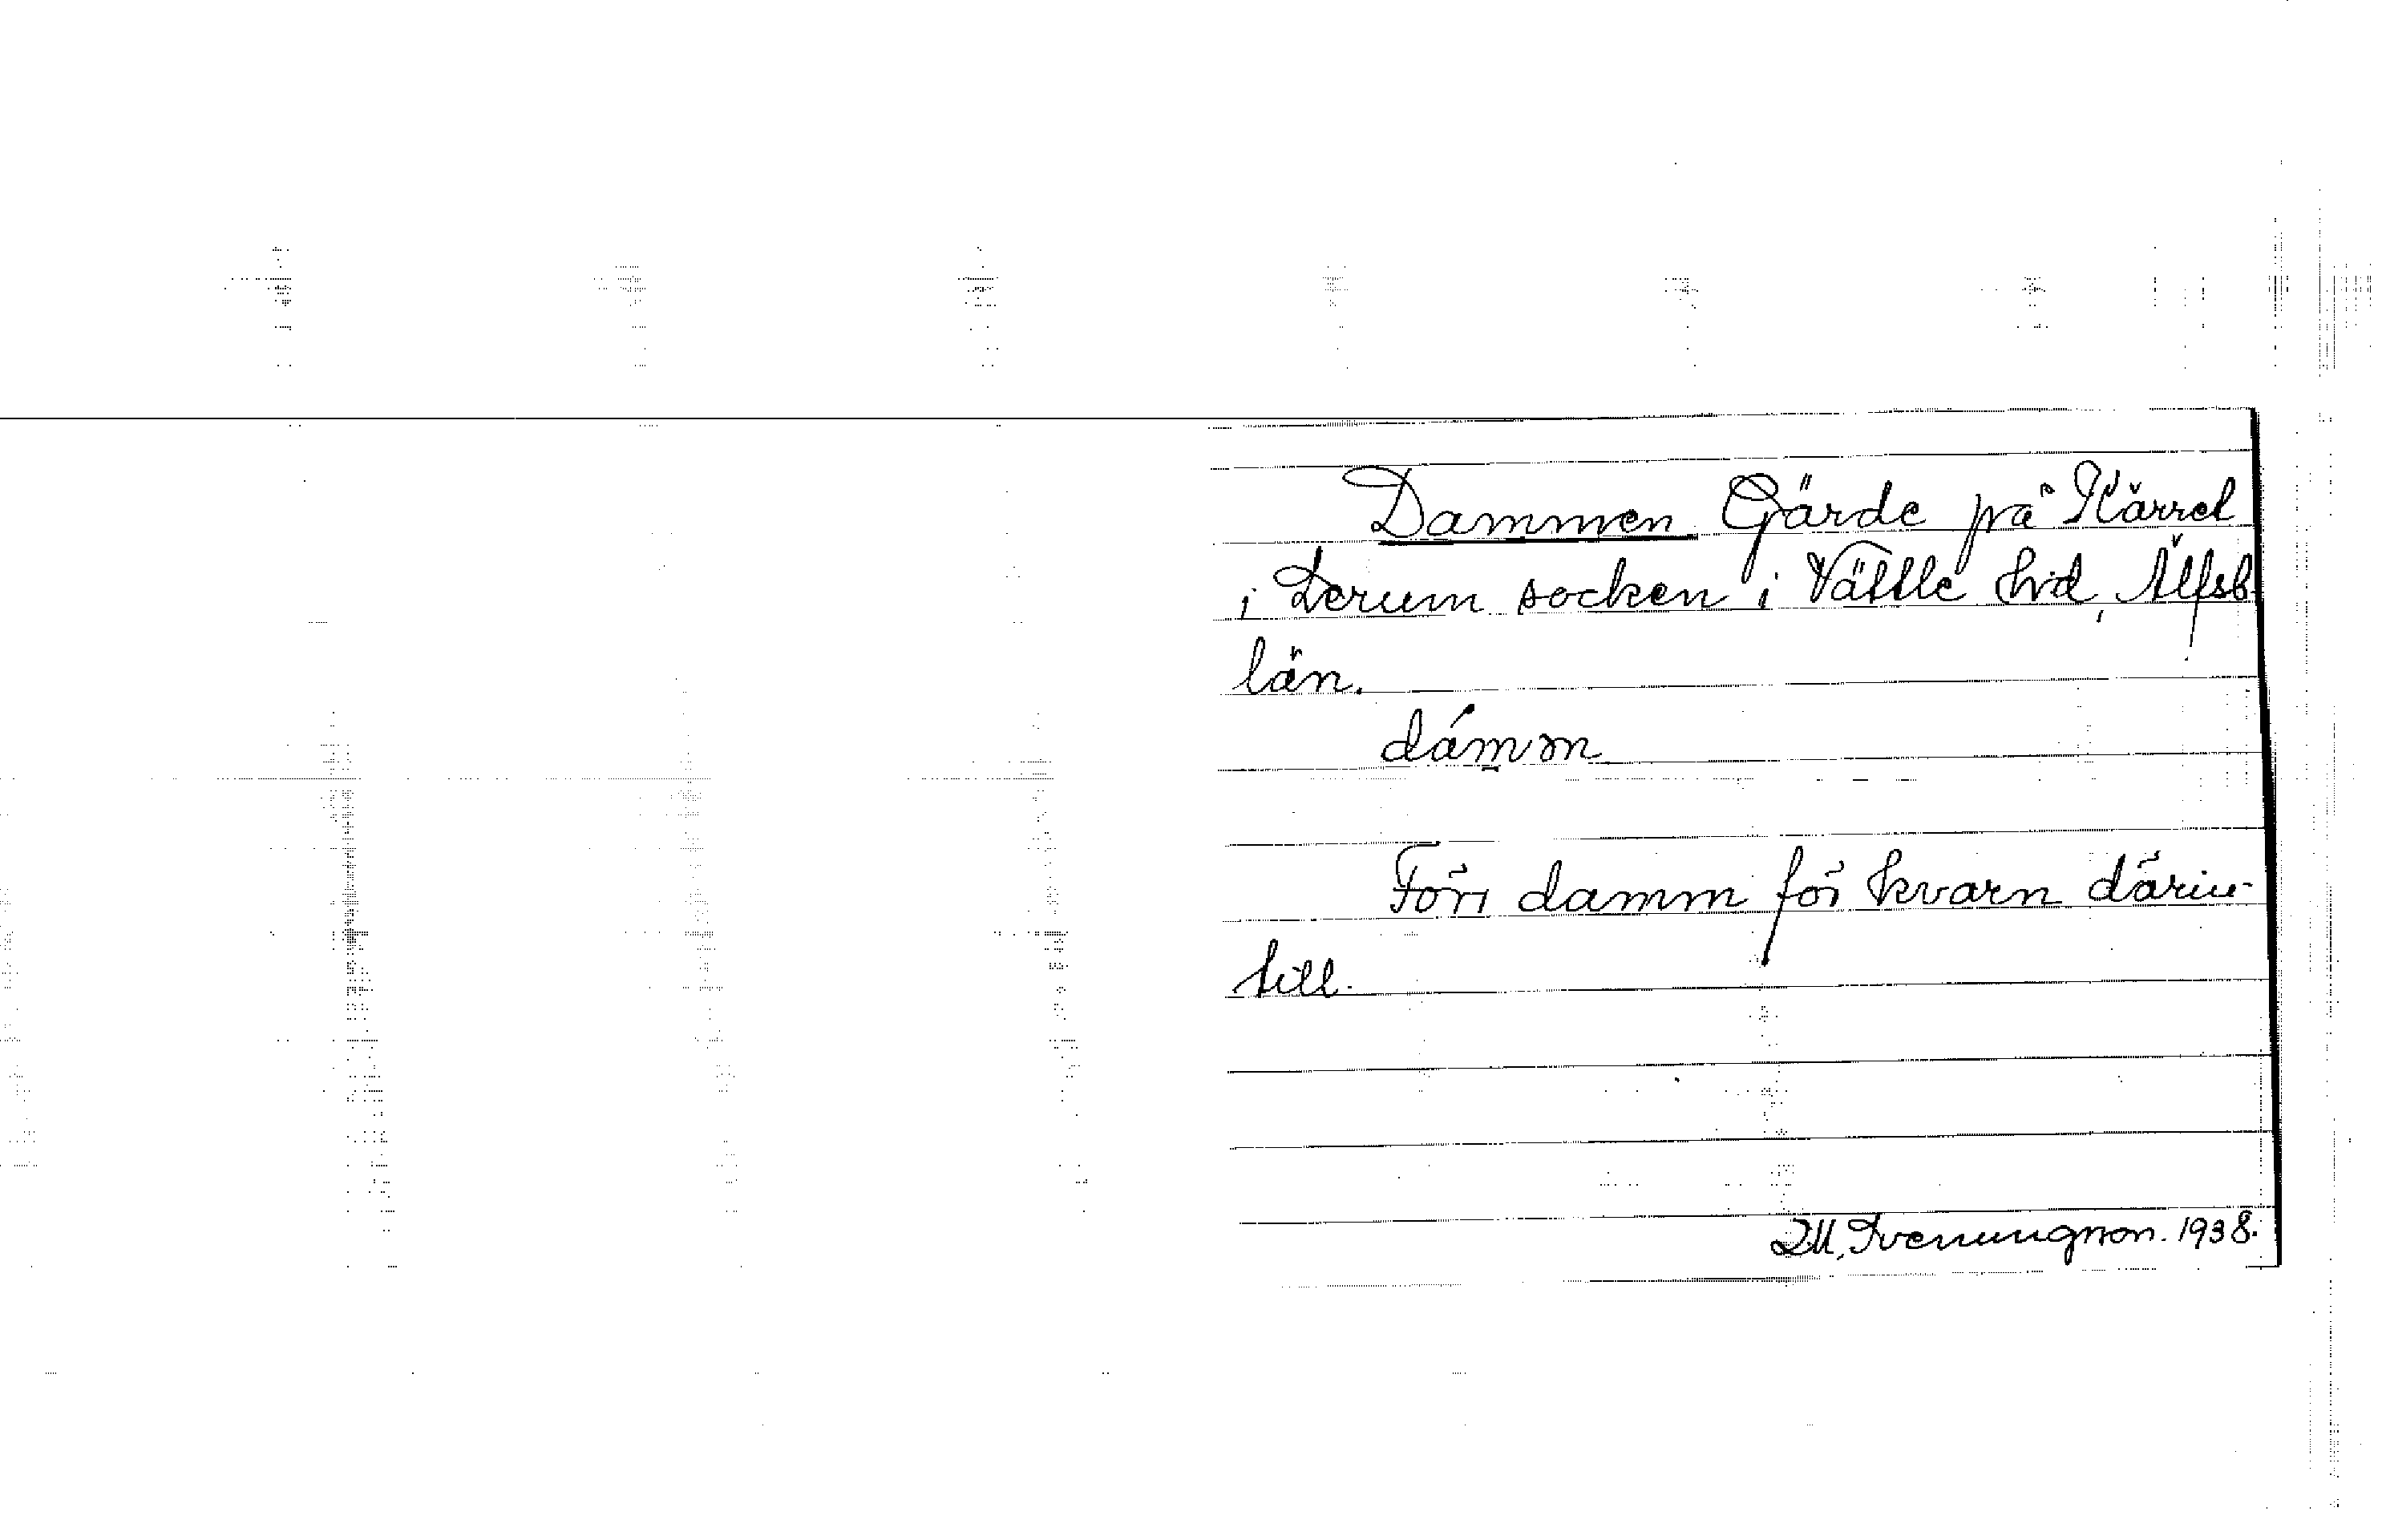 Dammen Gärde på Kärret
i Lerum socken i Vättle hrd, Älfsb.
län.
dámm̥
Förr damm för kvarn därin-
till.
D.M. Svenungsson. 1938.